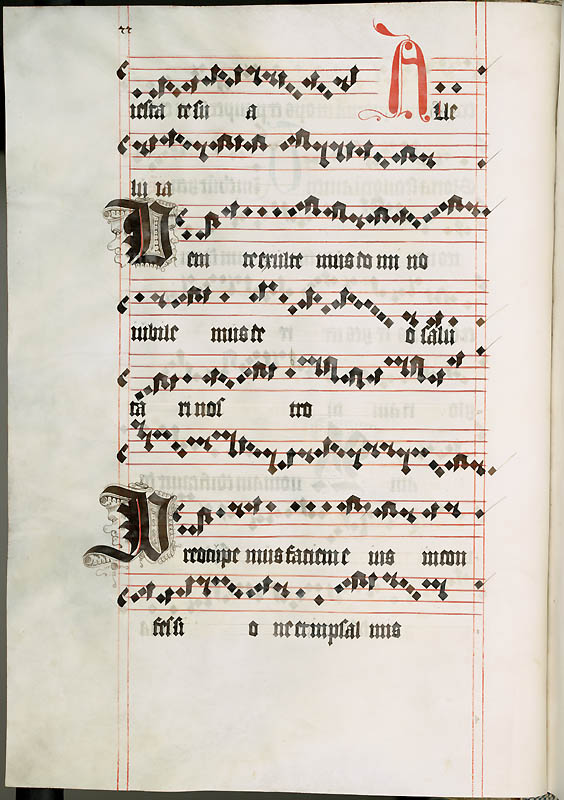 iesta te su a Alle
lu ia
Veni te exulte mus do mi no
iubile mus de o salu
ta ri nos tro
Preocupe mus faciem e ius in con
fessi o ne et in psal mis